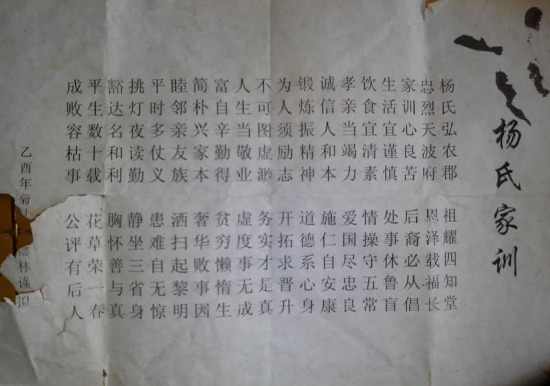 杨氏家训
杨氏弘农郡 祖耀四知堂
忠烈天波府 恩泽载福长
家训心良苦 后裔必从倡
生活宜谨慎 处事休鲁盲
饮食宜清素 情操守五常
孝亲当竭力 爱国尽忠良
诚信人和本 施仁自安康
锻炼振精神 道德系心身
为人须励志 开拓求晋升
不可图虚渺 务实才是真
人生当敬业 虚度事无成
富自辛勤得 贫穷懒惰生
简朴兴家本 奢华败事因
睦邻亲友族 洒扫起黎明
平时多仗义 患难自无惊
挑灯夜读勤 静坐三省身
豁达名和利 胸怀善与真
平生数十载 花草荣一春
成败容枯事 公评有后人
乙酉年 林谨拟